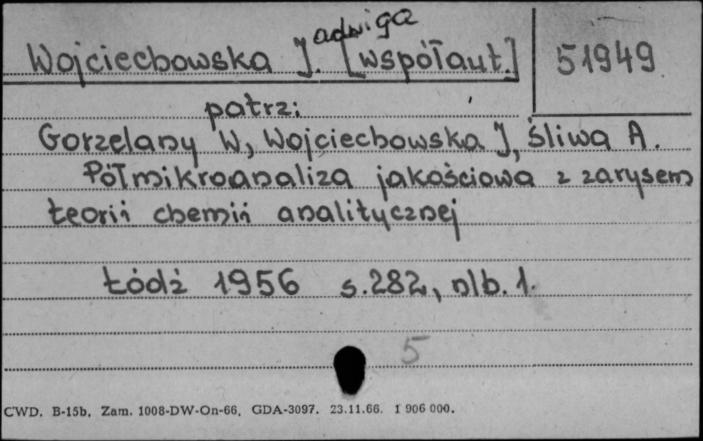 Wojciechowska J.adwiga [współaut.] 51949
patrz:
Gorzelany W, Wojciechowska J, Śliwa A.
Półmikroanaliza jakościowa z zarysem
teorii chemii analitycznej
Łódź 1956 s.282, nlb.1.
5
CWD. B-15b. Zam. 1008-DW-On-66. GDA-3097. 23.11.66. 1 906 000.